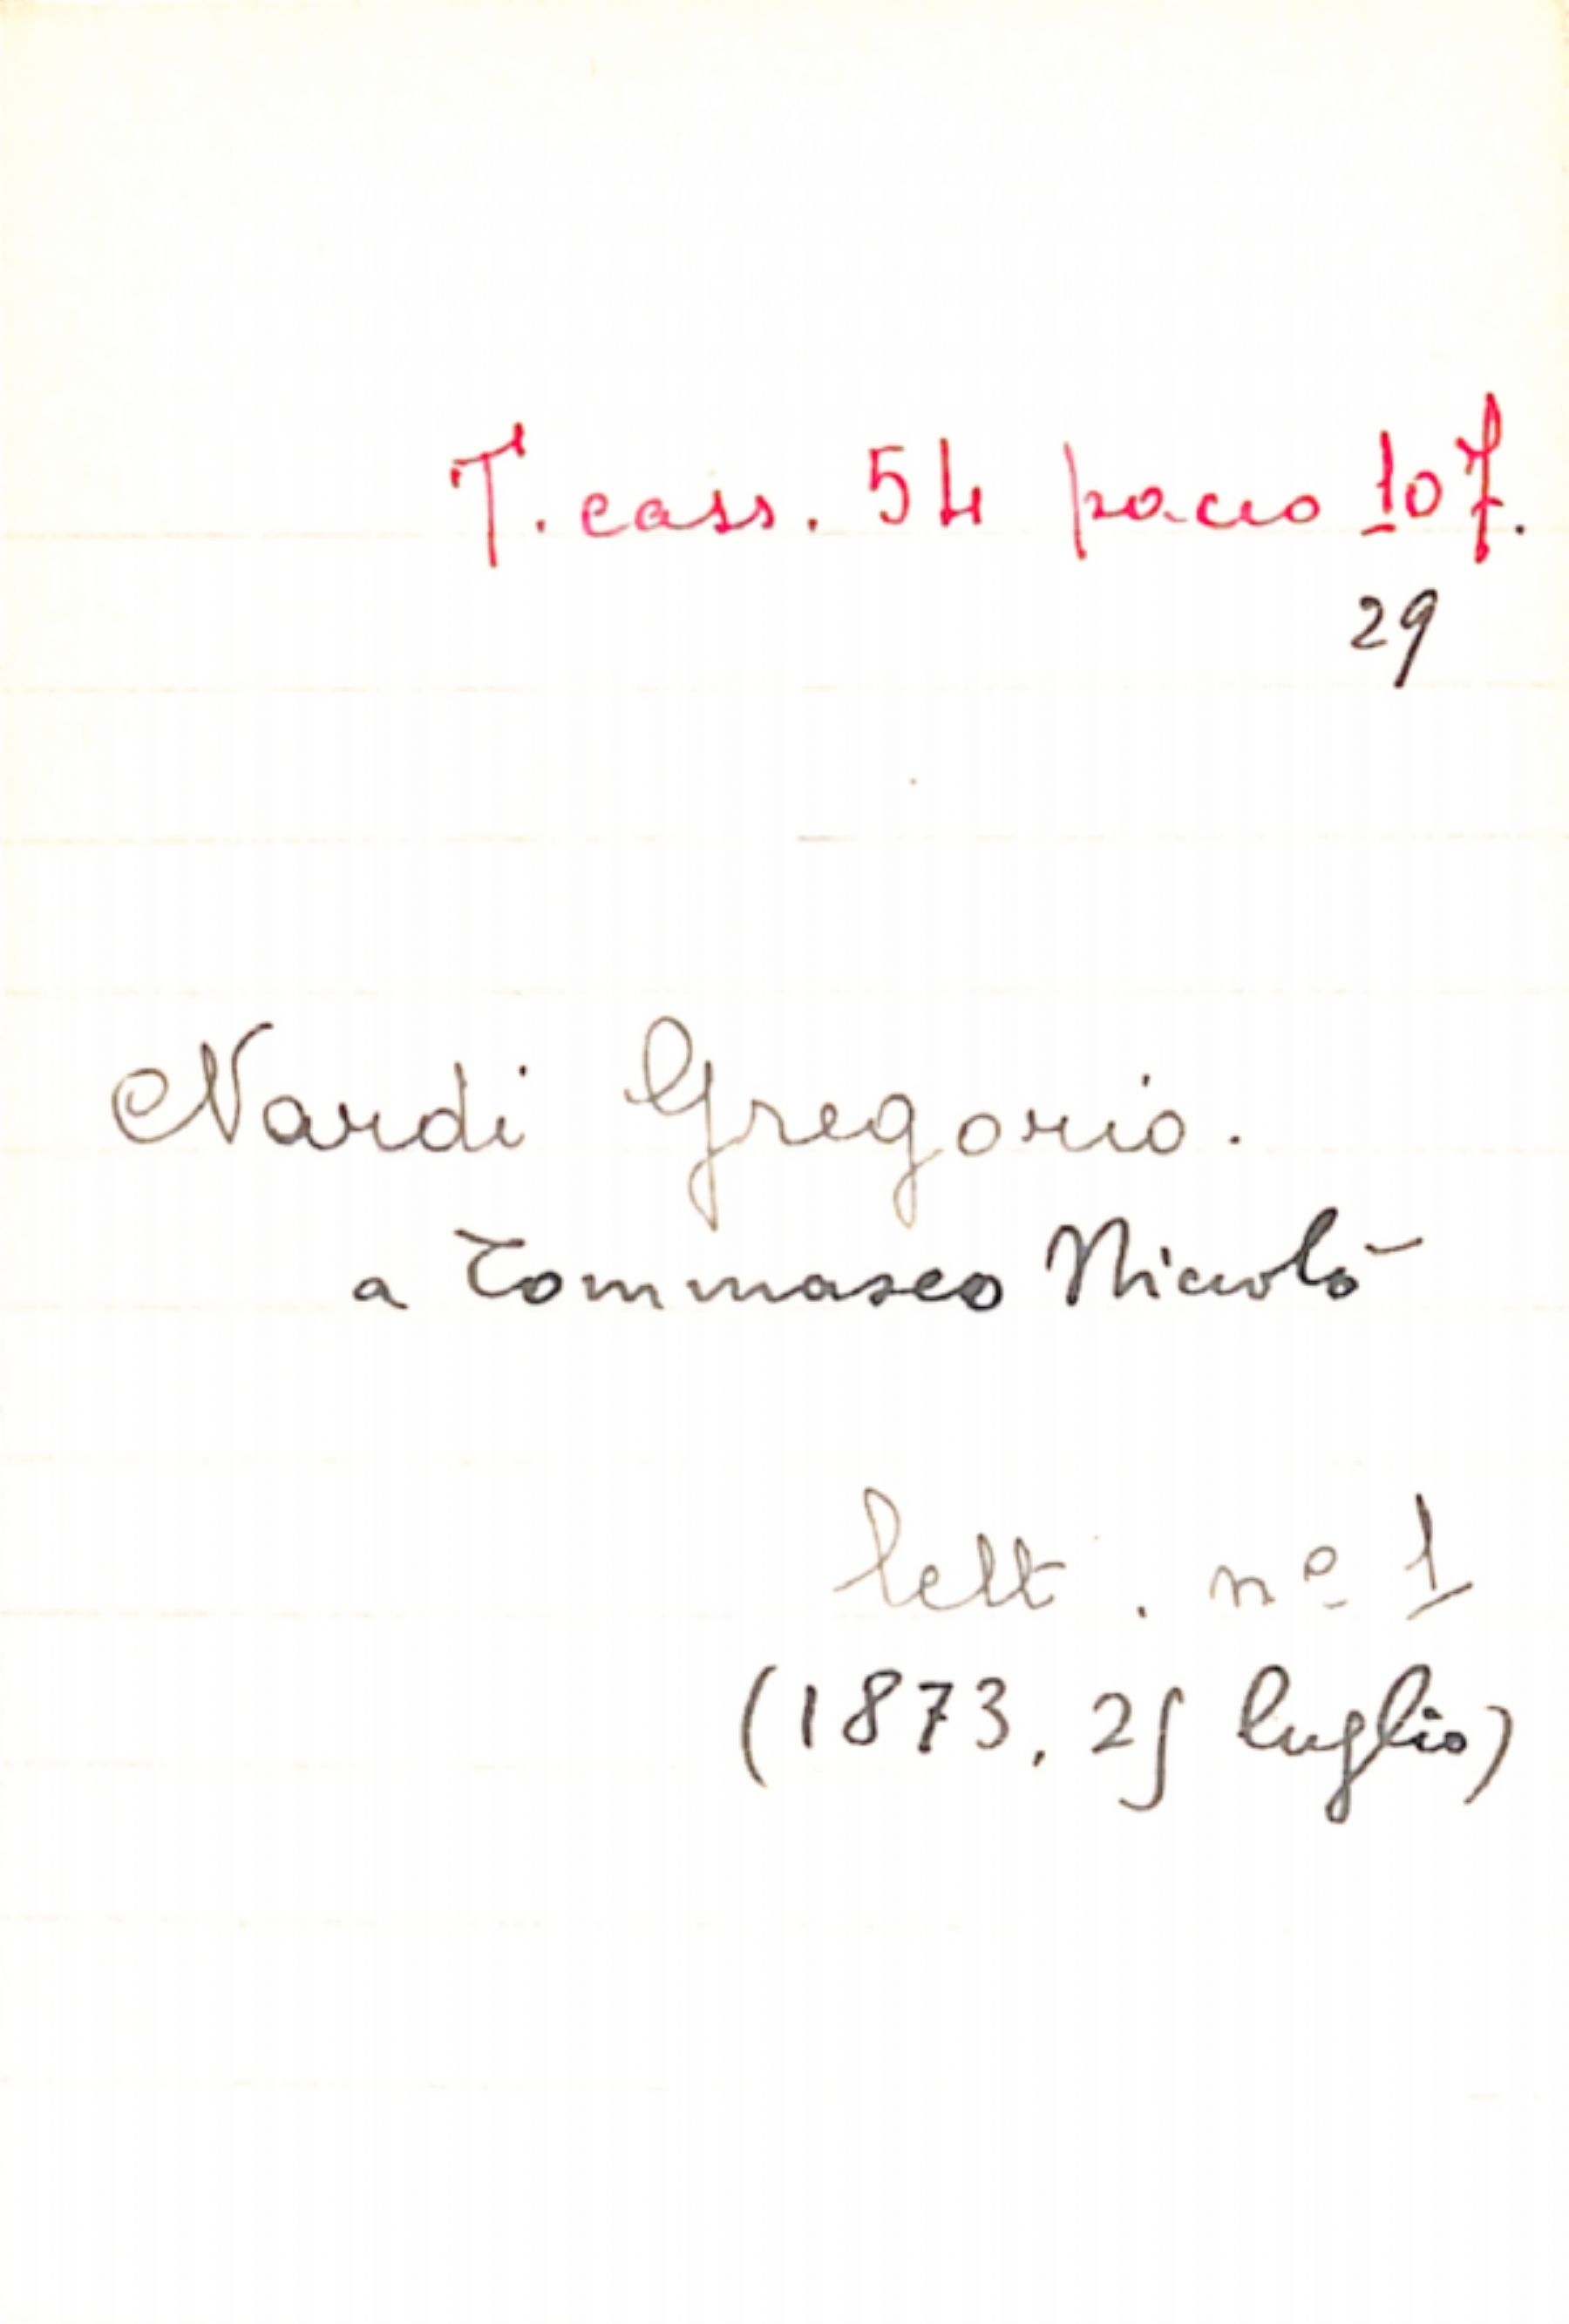 T. cass. 54 pacco 107.
29
Nardi Gregorio.
a Tommaseo Niccolò
lett. nº 1
(1873, 25 luglio)